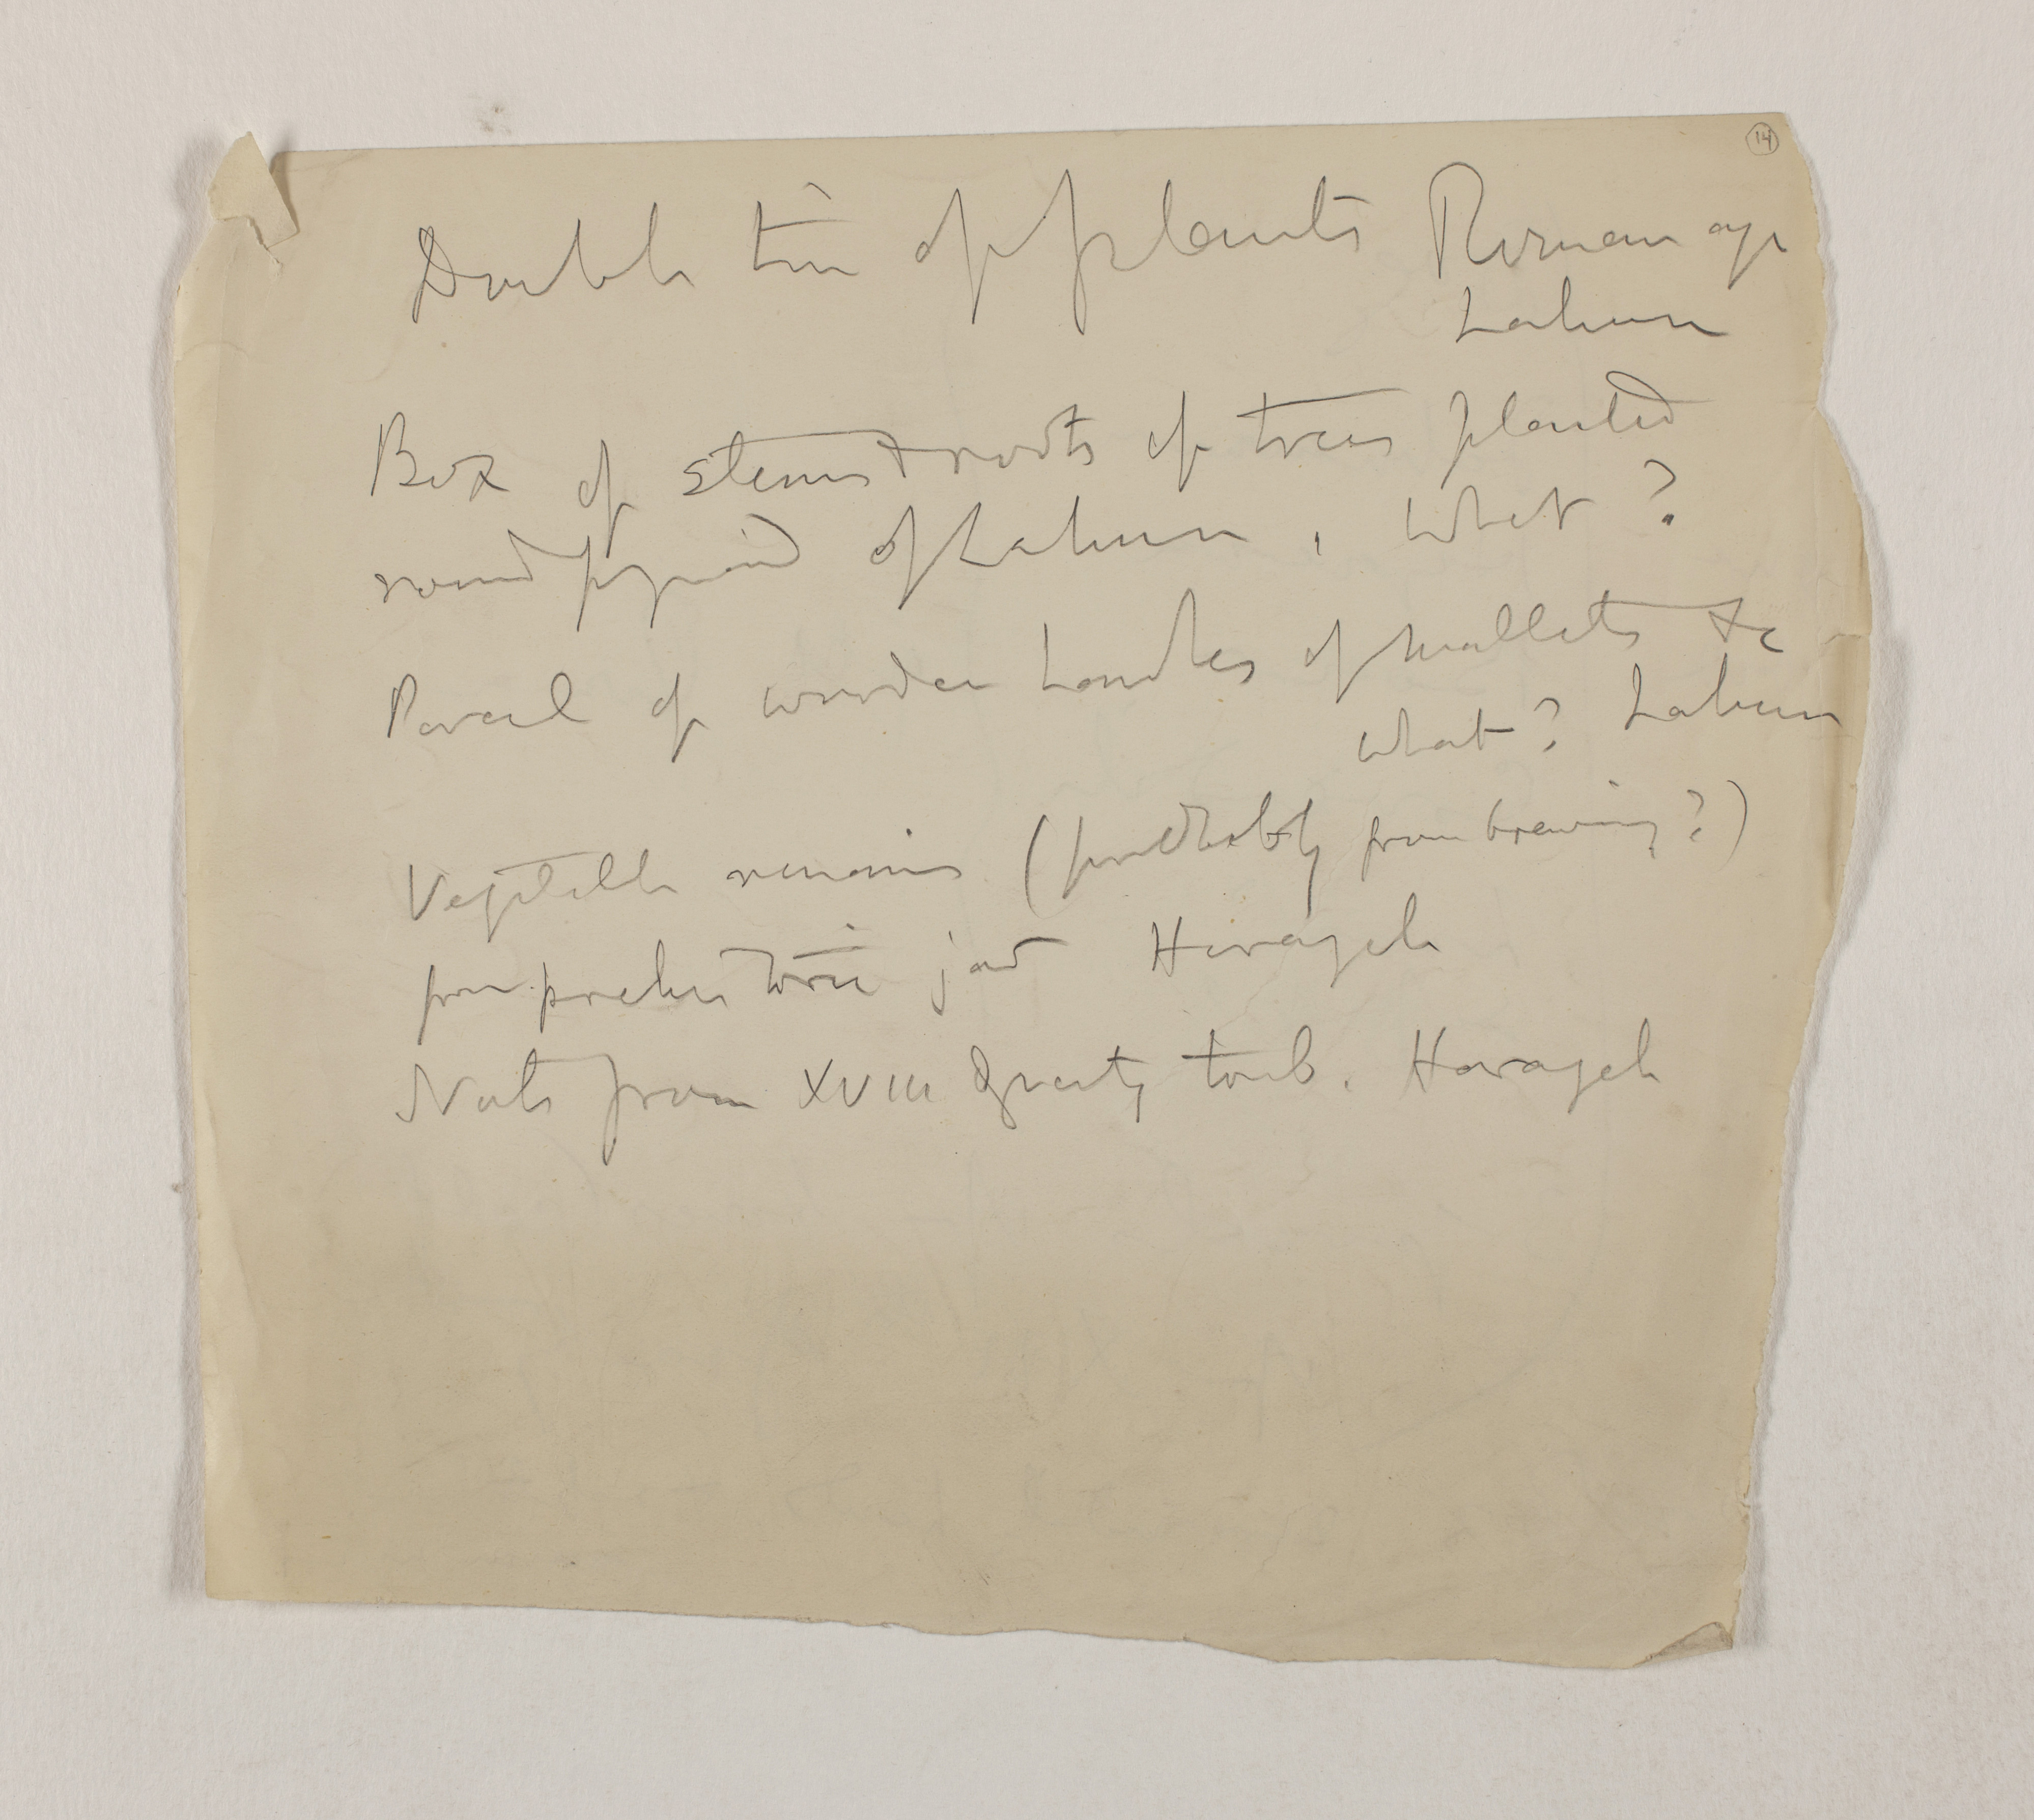 14
Double tin of plants Roman age
Lahun
Box of stems & roots of trees planted
round pyramid of Lahun, what?
Parcel of wooden handles of mallets &c
what? Lahun
Vegetable remains (probably from brewing?)
from prehistoric jar Harageh
Nuts from XVIII Dynasty tomb. Harageh